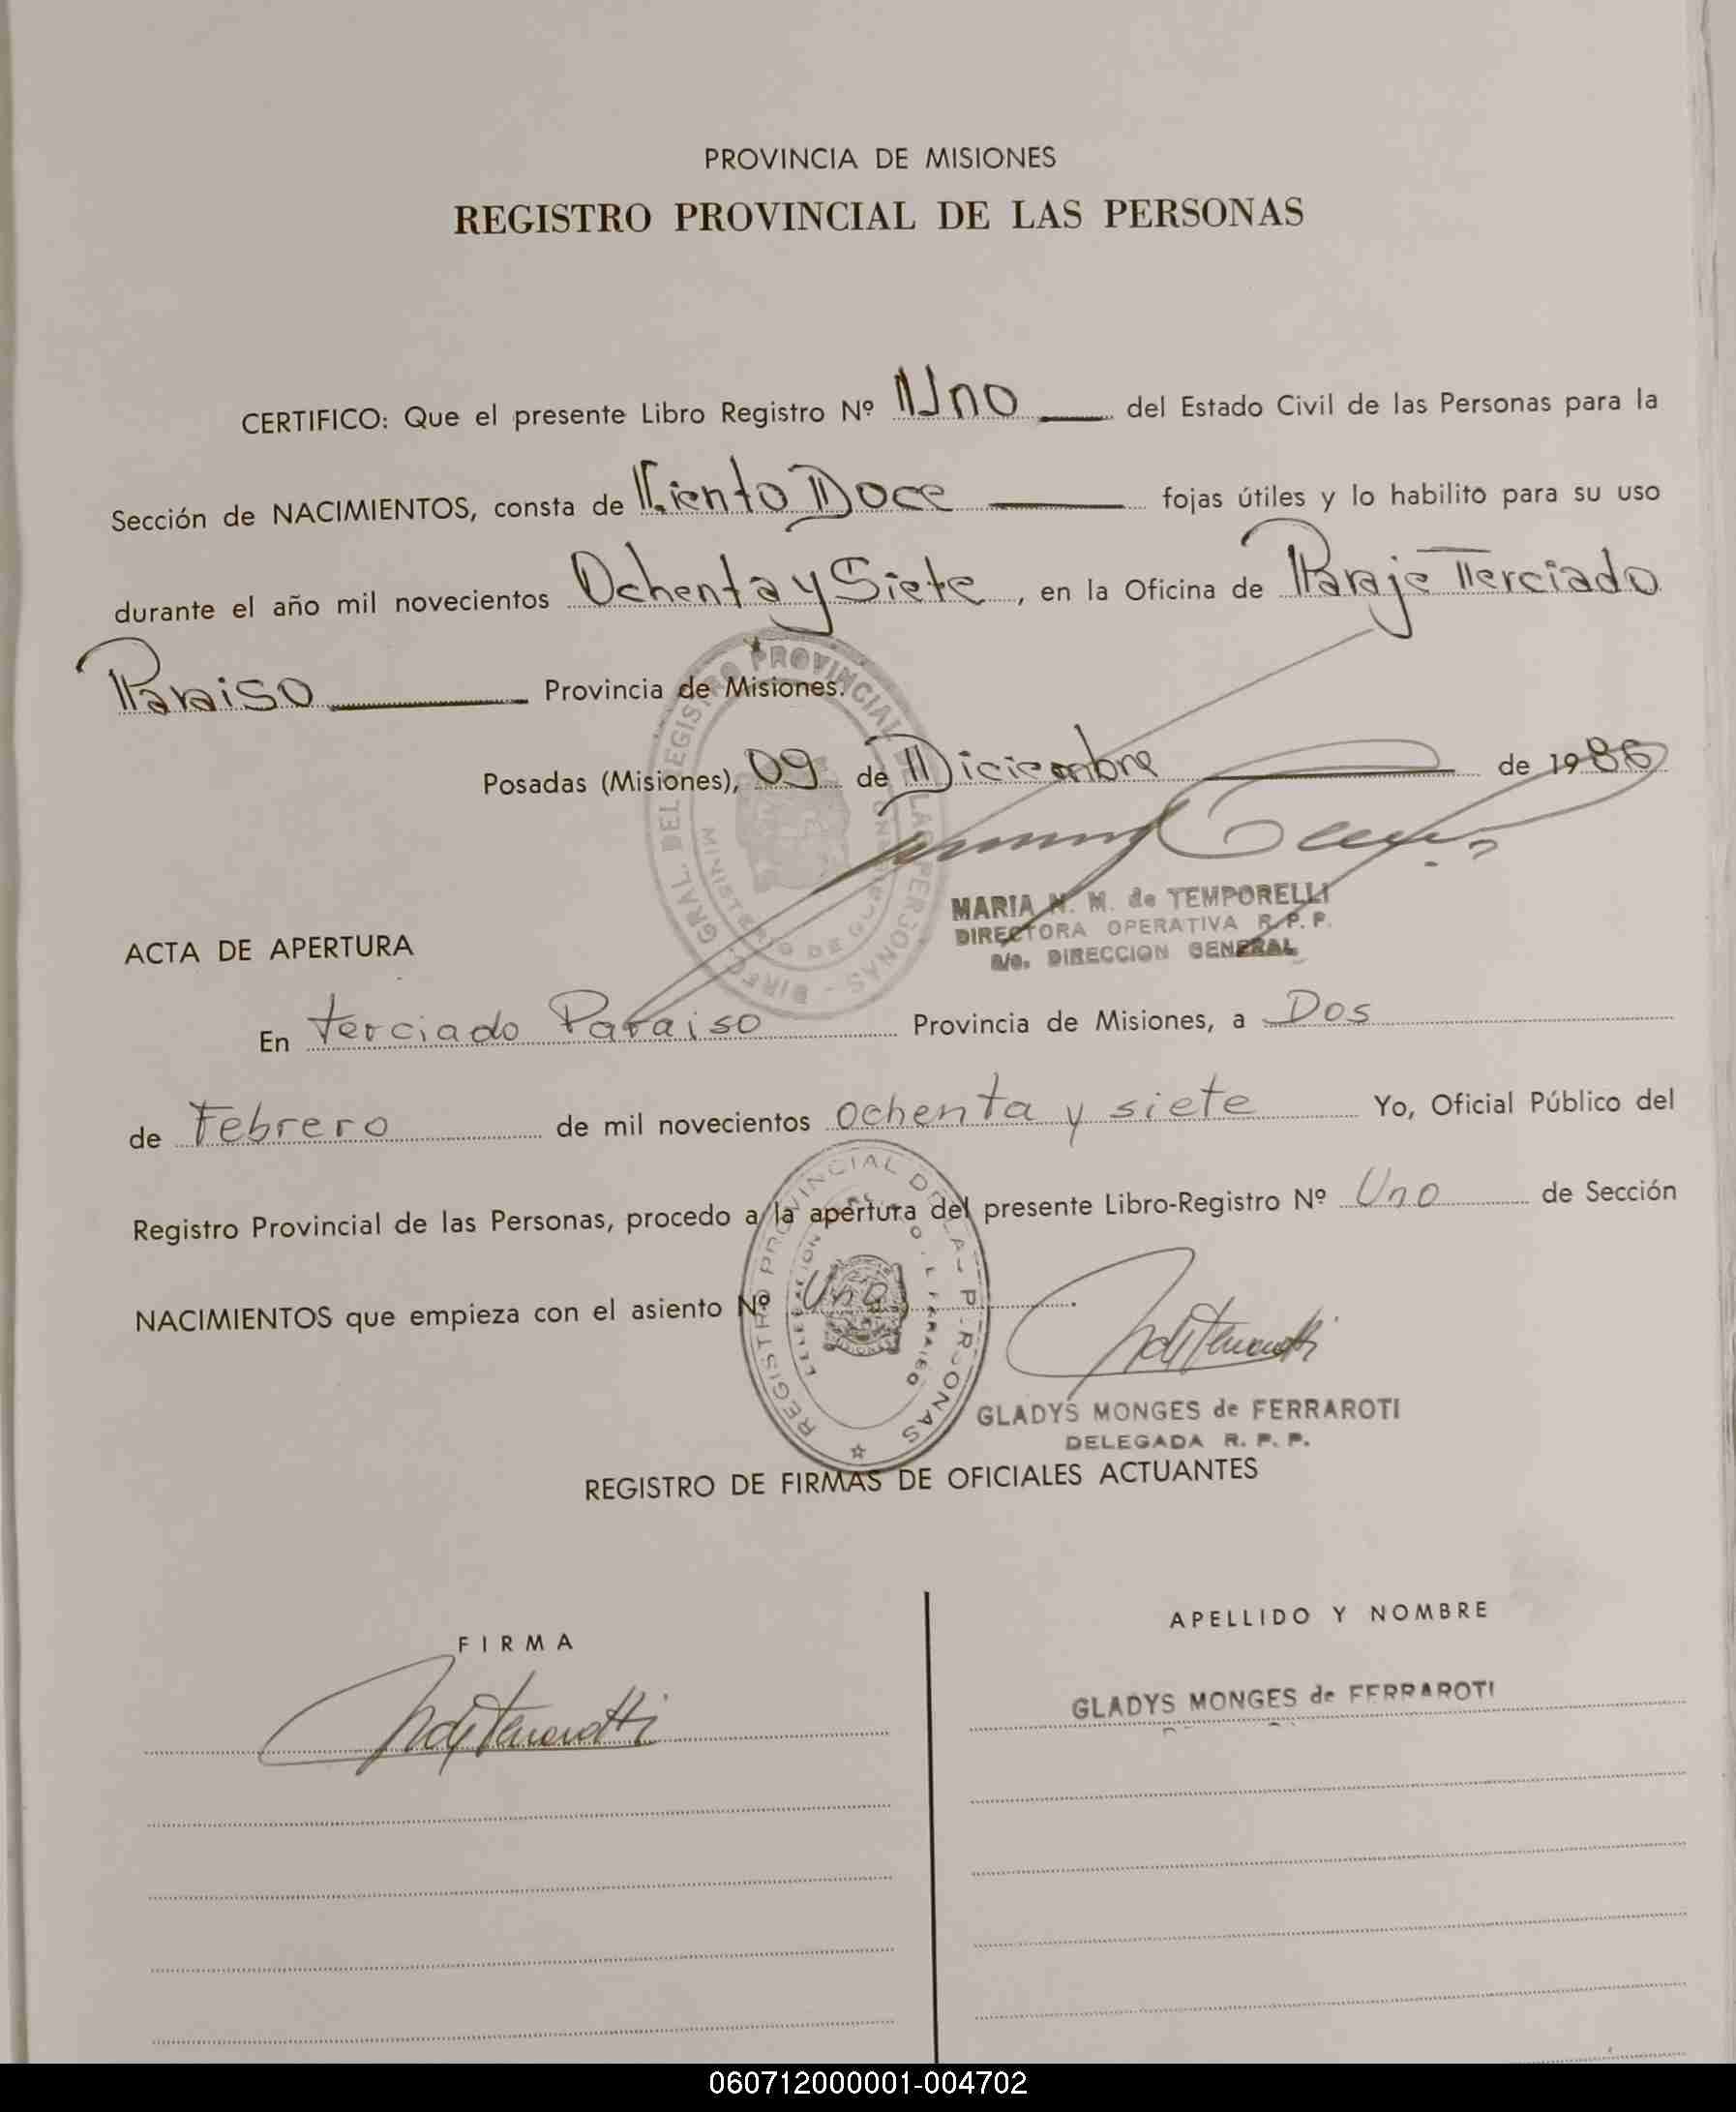 PROVINCIA DE MISIONES
REGISTRO PROVINCIAL DE LAS PERSONAS
CERTIFICO: Que el presente Libro Registro Nº Uno del Estado Civil de las Personas para la
Sección de NACIMIENTOS, consta de Ciento Doce fojas útiles y lo habilito para su uso
durante el año mil novecientos Ochenta y Siete, en la Oficina de Paraje Terciado
Paraiso Provincia de Misiones.
Posadas (Misiones), 09 de Diciembre de 1986
DIREC. GRAL. DEL REGISTRO PROVINCIAL DE LAS PERSONAS
MINISTERIO DE GOBIERNO
MARIA N. M. de TEMPORELLI
DIRECTORA OPERATIVA R. P. P.
a/c. DIRECCION GENERAL
ACTA DE APERTURA
En Terciado Paraiso Provincia de Misiones, a Dos
de Febrero de mil novecientos ochenta y siete Yo, Oficial Público del
Registro Provincial de las Personas, procedo a la apertura del presente Libro-Registro Nº Uno de Sección
NACIMIENTOS que empieza con el asiento Nº Uno.
REGISTRO PROVINCIAL DE LAS PERSONAS
GLADYS MONGES de FERRAROTI
DELEGADA R. P. P.
REGISTRO DE FIRMAS DE OFICIALES ACTUANTES
FIRMA
APELLIDO Y NOMBRE
GLADYS MONGES de FERRAROTI
060712000001-004702